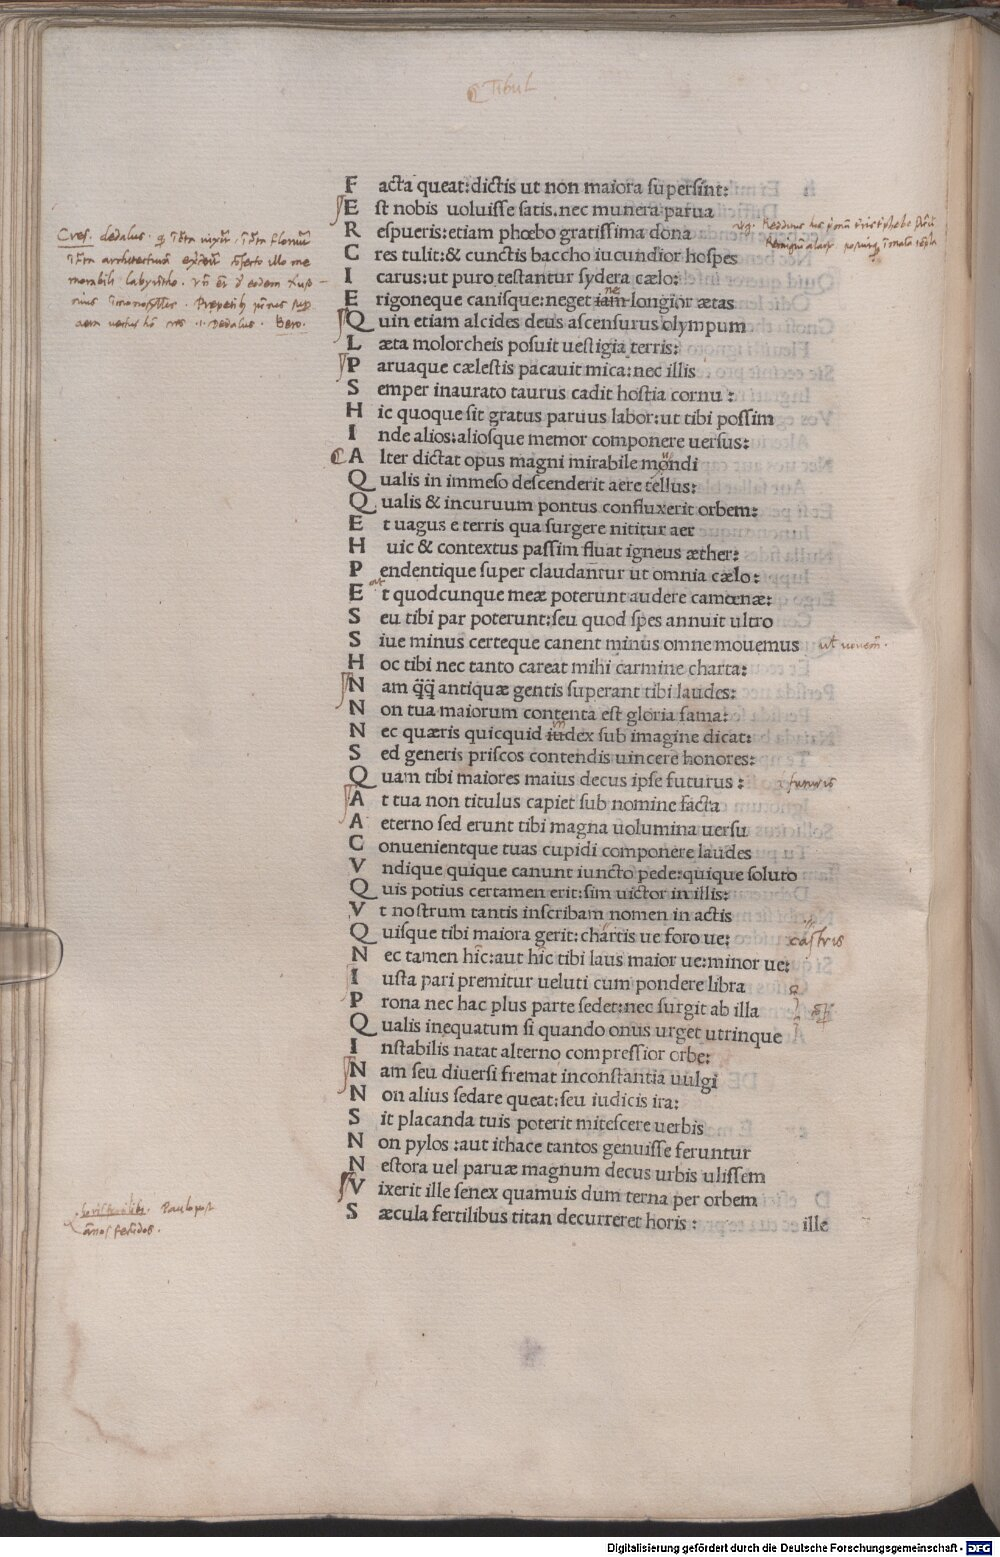 Tibul
F acta queat:dictis ut non maiora superſint:
E ſt nobis uoluiſſe ſatis.nec munera parua
R eſpueris:etiam phœbo gratiſſima dona
C res tulit:& cunctis baccho iucundior hoſpes
I carus:ut puro teſtantur ſydera cælo:
E rigoneque caniſque:neget iam longior ætas
ne
Q uin etiam alcides deus aſcenſurus olympum
L æta molorcheis poſuit ueſtigia terris:
P aruaque cæleſtis pacauit mica:nec illis
S emper inaurato taurus cadit hoſtia cornu :
H ic quoque ſit gratus paruus labor:ut tibi poſſim
I nde alios:alioſque memor componere uerſus:
A lter dictat opus magni mirabile mondi
Q ualis in immeſo deſcenderit aere tellus:
Q ualis & incuruum pontus confluxerit orbem:
E t uagus e terris qua ſurgere nititur aer
H uic & contextus paſſim fluat igneus æther:
P endentique ſuper claudantur ut omnia cælo:
E t quodcunque meæ poterunt audere camœnæ:
S eu tibi par poterunt:ſeu quod ſpes annuit ultro
S iue minus certeque canent minus omne mouemus
H oc tibi nec tanto careat mihi carmine charta:
N am q̄q̄ antiquæ gentis ſuperant tibi laudes:
N on tua maiorum contenta eſt gloria fama:
N ec quæris quicquid iudex ſub imagine dicat:
S ed generis priſcos contendis uincere honores:
Q uam tibi maiores maius decus ipſe futurus :
futuris
A t tua non titulus capiet ſub nomine facta
A eterno ſed erunt tibi magna uolumina uerſu
C onuenientque tuas cupidi componere laudes
V ndique quique canunt iuncto pede:quique ſoluto
Q uis potius certamen erit:ſim uictor in illis:
V t noſtrum tantis inſcribam nomen in actis
Q uiſque tibi maiora gerit:chartis ue foro ue:
caſtris
N ec tamen hīc:aut hīc tibi laus maior ue:minor ue:
I uſta pari premitur ueluti cum pondere libra
P rona nec hac plus parte ſedet:nec ſurgit ab illa
Q ualis inequatum ſi quando onus urget utrinque
I nſtabilis natat alterno compreſſior orbe:
N am ſeu diuerſi fremat inconſtantia uulgi
N on alius ſedare queat:ſeu iudicis ira:
S it placanda tuis poterit miteſcere uerbis
N on pylos :aut ithace tantos genuiſſe feruntur
N eſtora uel paruæ magnum decus urbis uliſſem
V ixerit ille ſenex quamuis dum terna per orbem
S æcula fertilibus titan decurreret horis :
ille
Digitalisierung gefördert durch die Deutsche Forschungsgemeinschaft - DFG